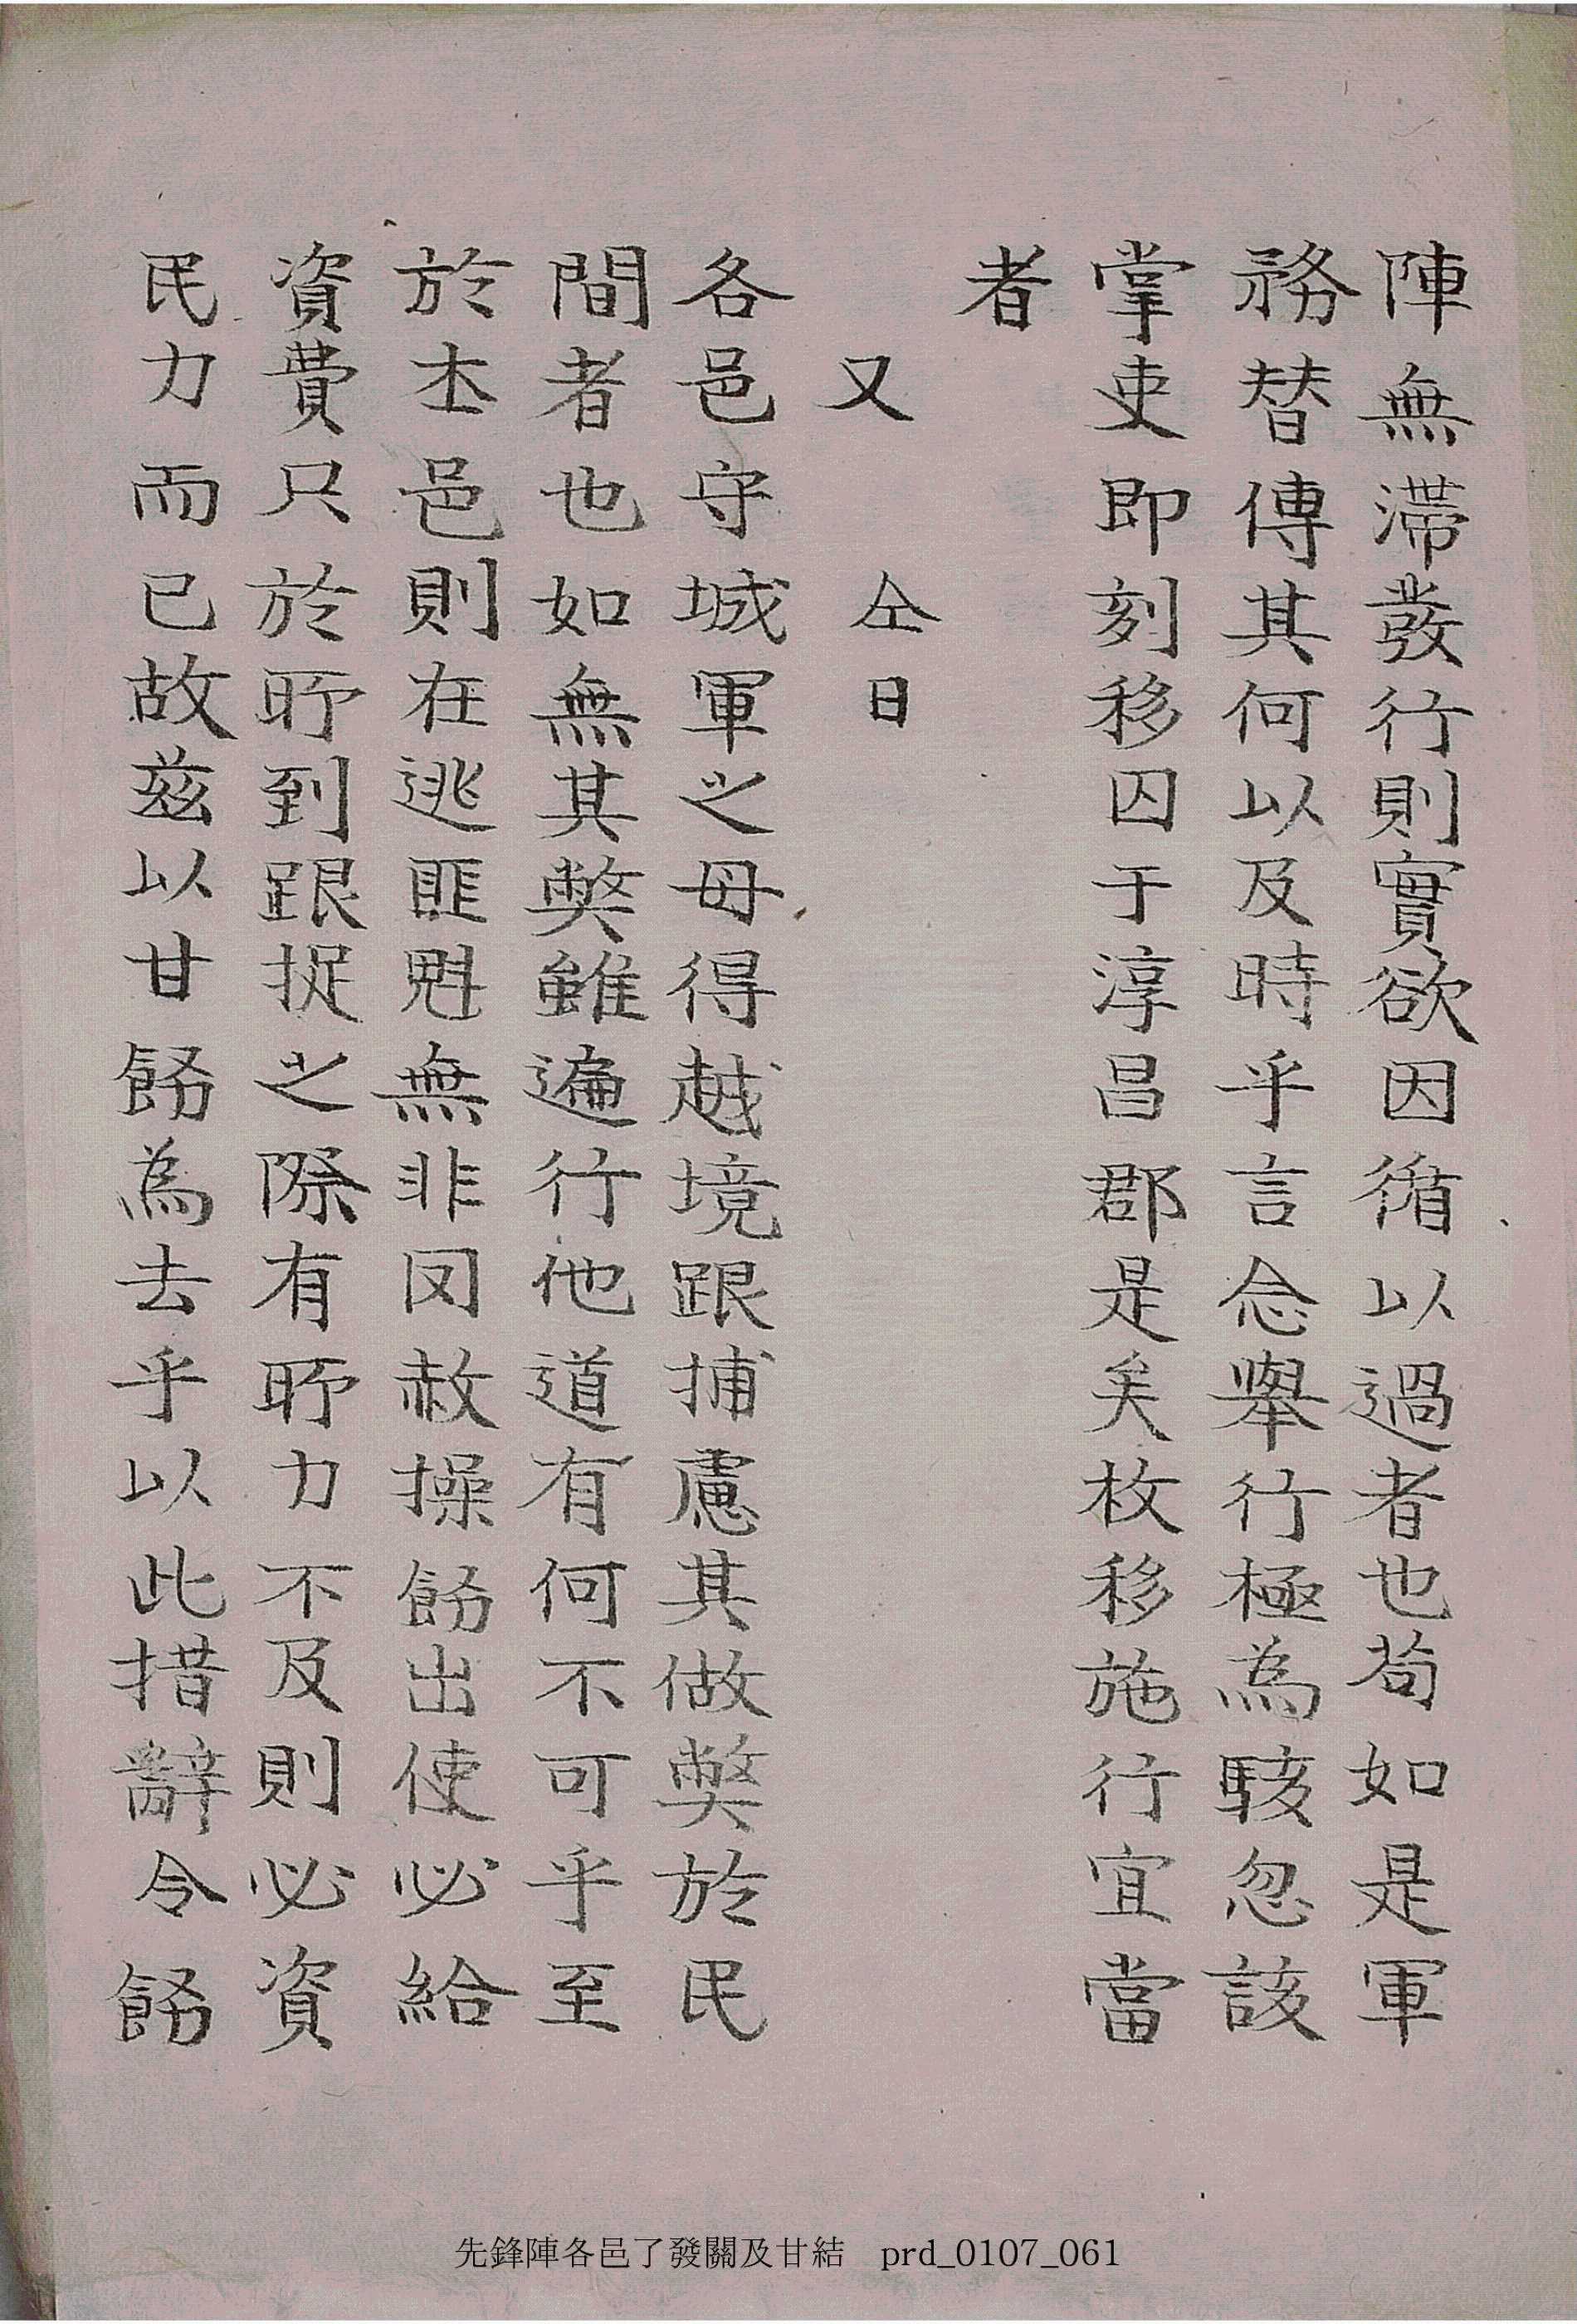 陣無滯發行則實欲因循以過者也苟如是軍
務替傳其何以及時乎言念擧行極爲駭忽該
掌吏即刻移囚于淳昌郡是矣枚移施行宜當
者
又 仝日
各邑守城軍之毋得越境跟捕慮其做弊於民
間者也如無其弊雖遍行他道有何不可乎至
於本邑則在逃匪魁無非罔赦操飭出使必給
資費只於所到跟捉之際有所力不及則必資
民力而已故玆以甘飭爲去乎以此措辭令飭
先鋒陣各邑了發關及甘結 prd_0107_061